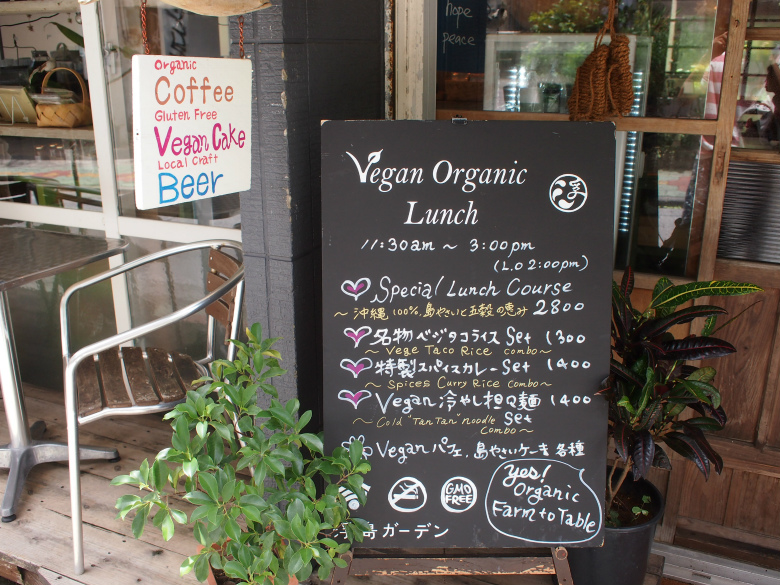 Hope
peace
Organic
Coffee
Gluten Free
Vegan Cake
Local Craft
Beer
Vegan Organic
Lunch
11:30am ~ 3:00pm
(L.O 2:00pm)
Special Lunch Course
~沖縄100%島やさいと五穀の恵み 2800
名物ベジタコライス Set 1300
~Vege Taco Rice combo~
特製スパイスカレー Set 1400
~Spices Curry Rice combo~
Vegan 冷やし担々麺 1400
~Cold "TanTan" noodle Set
combo~
Vegan パフェ、島やさいケーキ 各種
GMO
FREE
yes!
Organic
Farm to Table
浮島ガーデン